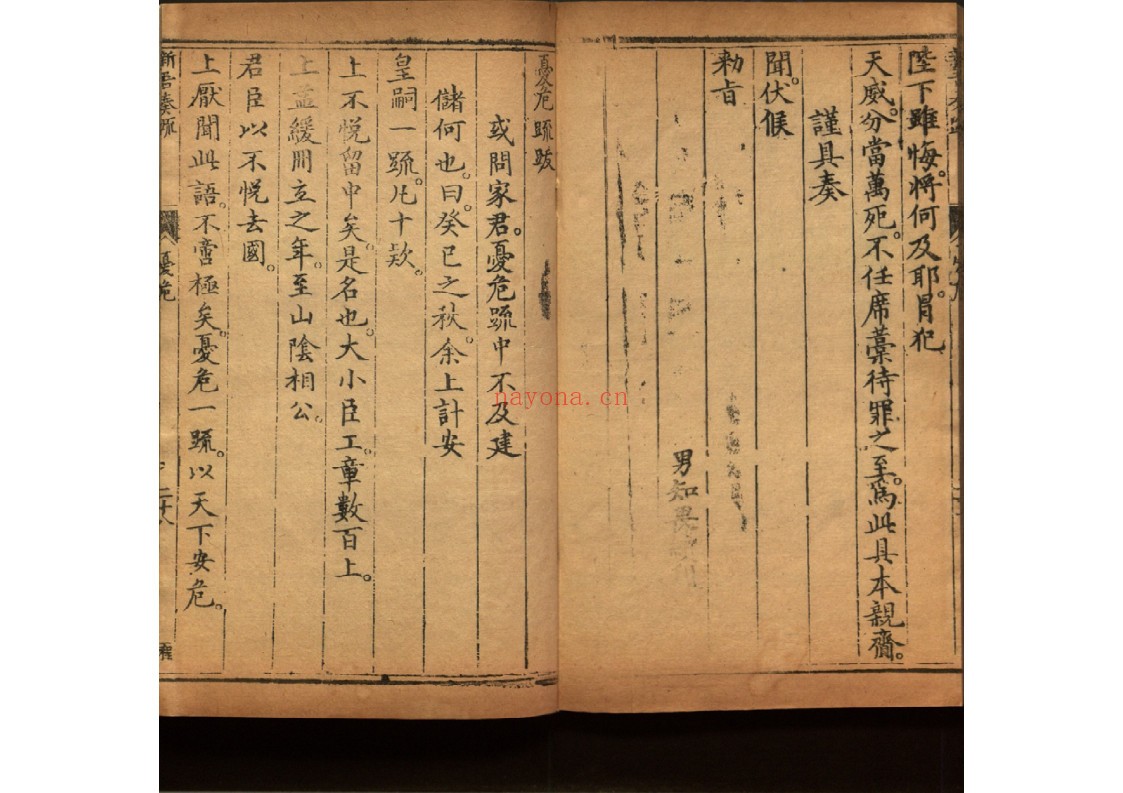 陛下雖悔。將何及耶。冒犯
天威。分當萬死。不任席藁待罪之至。爲此具本親齎。
謹具奏
聞。伏候
勑旨
男知畏
憂危䟽跋
或問家君。憂危䟽中不及建
儲何也。曰。癸巳之秋。余上計安
皇嗣一䟽。凡十欵。
上不悅留中矣。是名也。大小臣工。章數百上。
上益緩冊立之年。至山陰相公。
君臣以不悅去國。
上厭聞此語。不啻極矣。憂危一䟽。以天下安危。
新吾奏䟽
憂危
二十八
nayona.cn